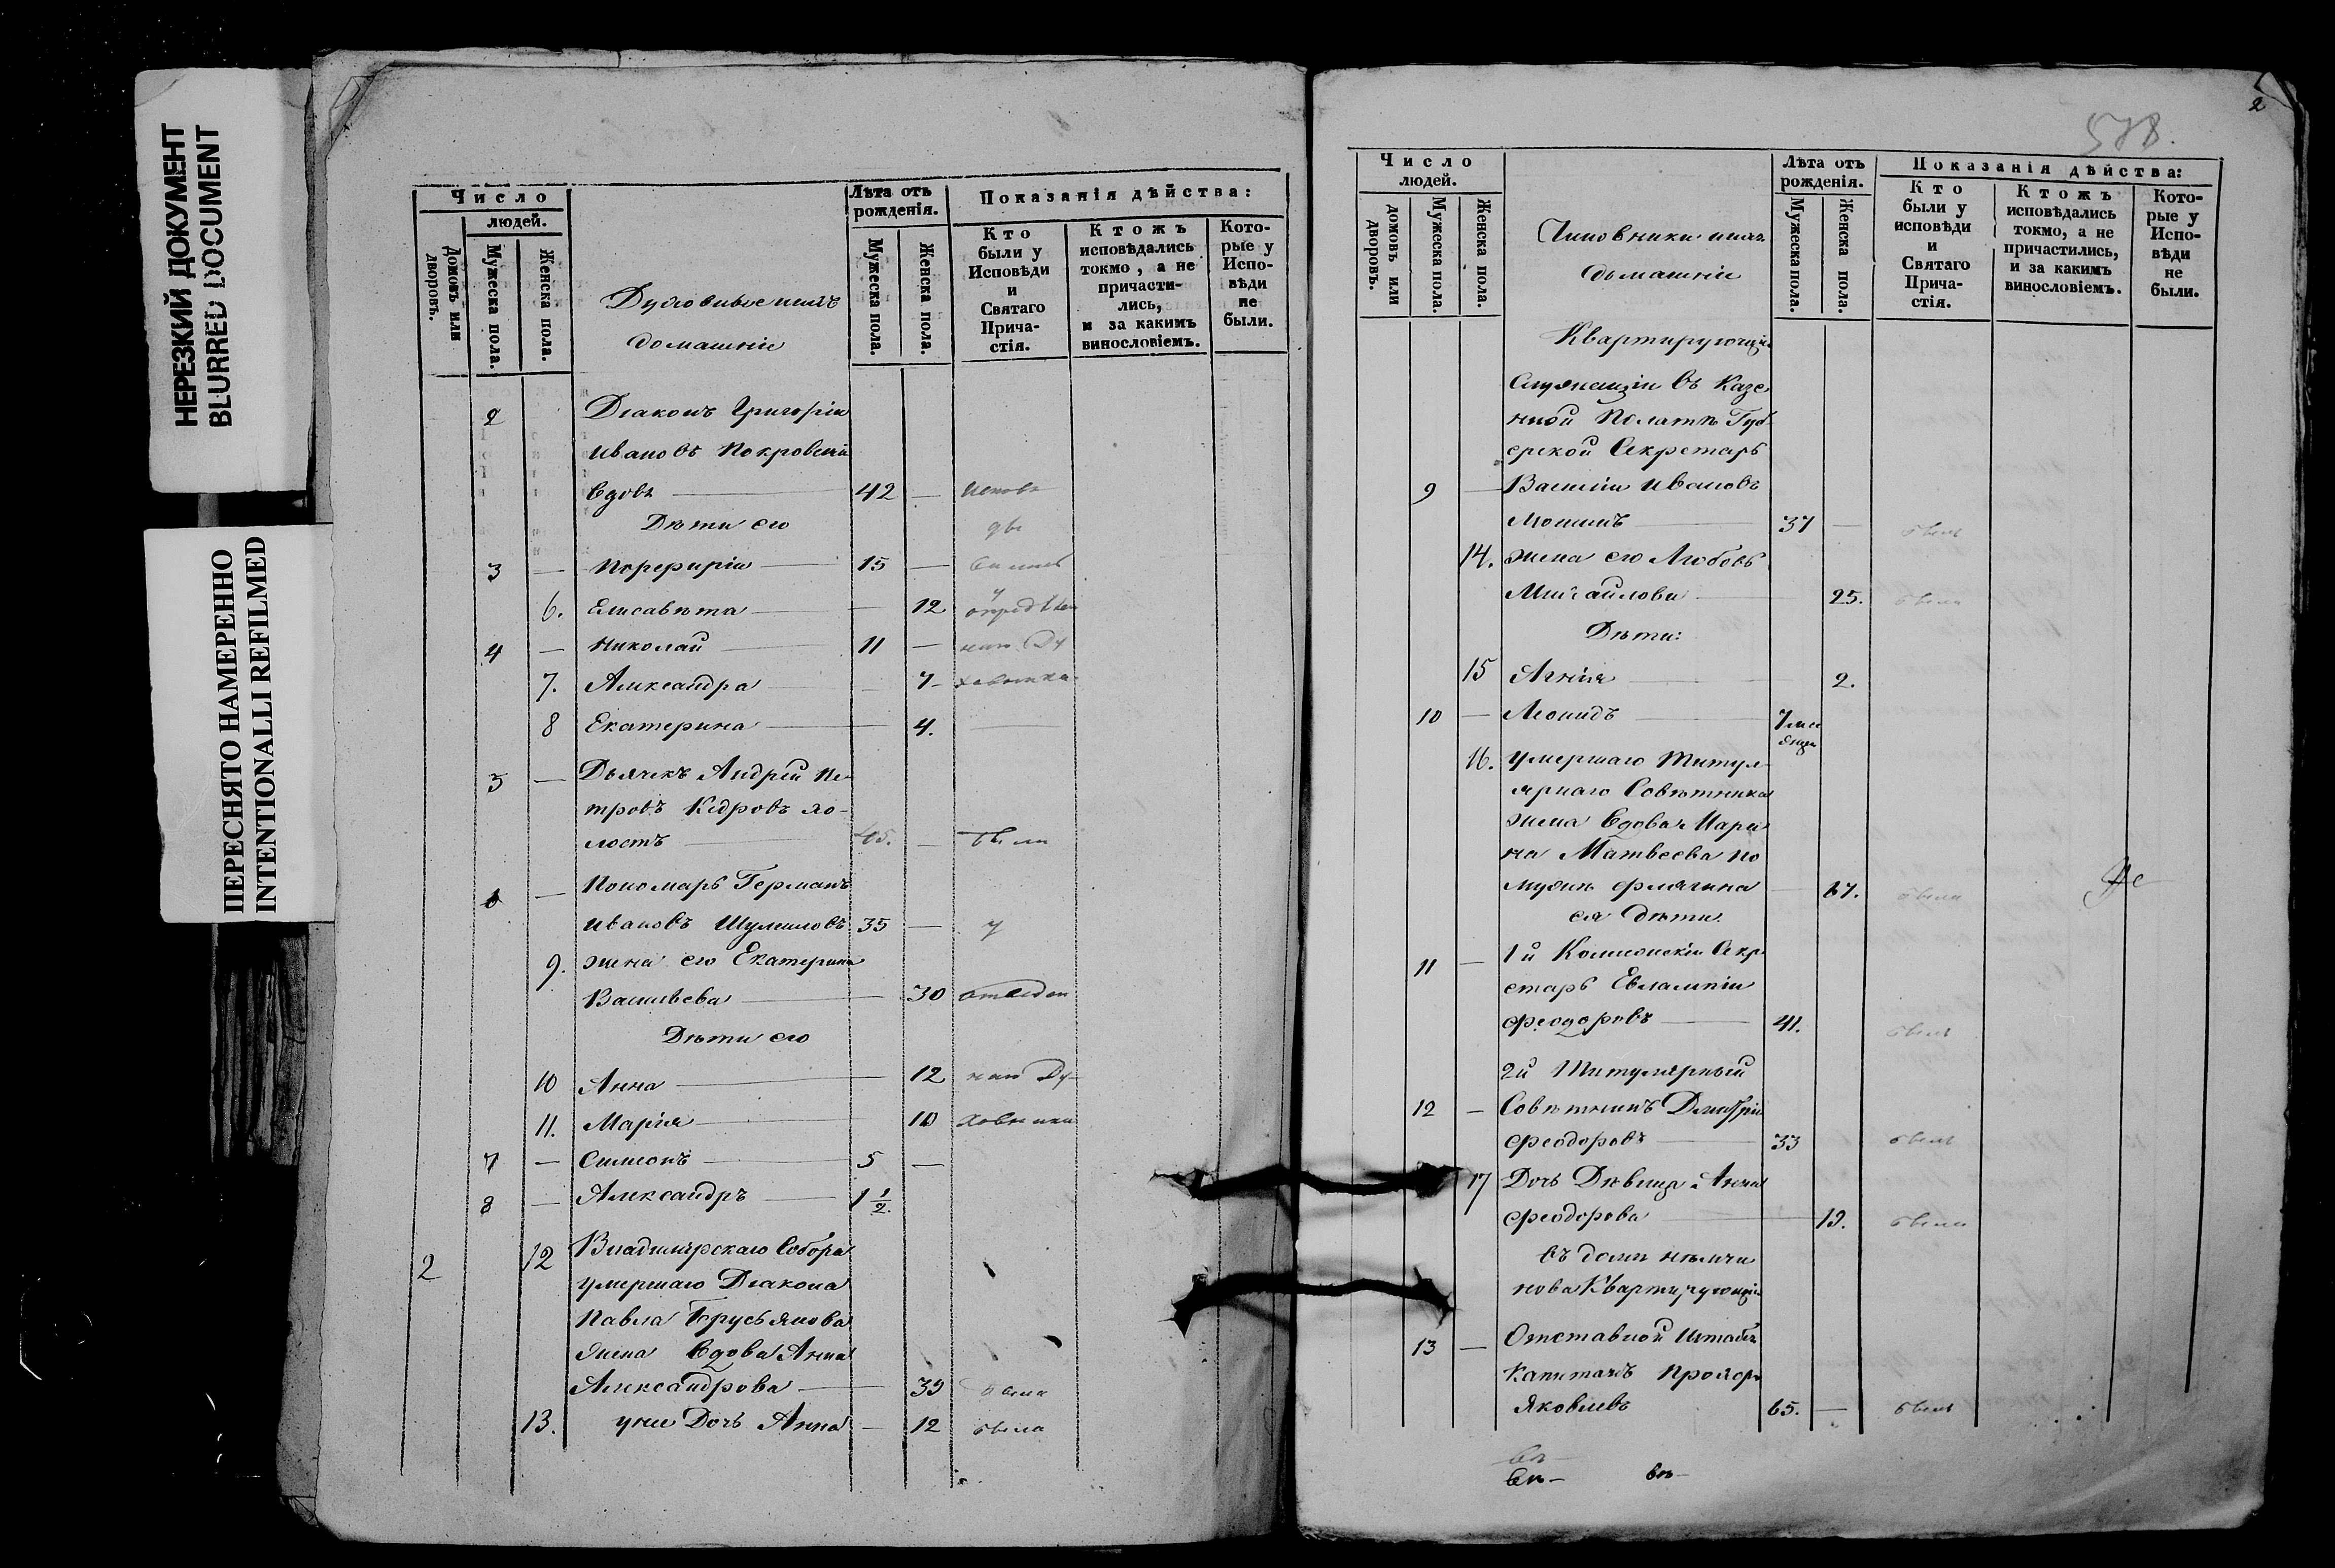 НЕРЕЗКИЙ ДОКУМЕНТ
BLURRED DOCUMENT
ПЕРЕСНЯТО НАМЕРЕННО
INTENTIONALLI REFILMED
Число
людей.
Домовъ или дворовъ.
Мужеска пола.
Женска пола.
домашніе
Лѣта отъ рожденія.
Мужеска пола.
Женска пола.
Показанія дѣйства:
Кто были у Исповѣди и Святаго Прича-стія.
Ктожъ исповѣдались токмо, а не причасти-лись, и за какимъ винословіемъ.
Кото-рые у Испо-вѣди не были.
2 Діаконъ Григорій
Ивановъ Покровскій
вдовъ 42 —
Дѣти его
3 — Порфирій 15 —
6. Елисавета — 12
4 — Николай 11 —
7. Александра — 7
8 Екатерина — 4.
5 — Дьячекъ Андрей Пе-
тровъ Кедровъ хо-
лостъ 45. — были
6 — Пономарь Германъ
Ивановъ Шумиловъ 35 — у
9. жена его Екатерина
Васильева — 30
Дѣти его
10 Анна — 12
11. Марія — 10
7 — Симеонъ 5 —
8 — Александръ 1 1/2.
2 12 Владимірскаго Собора
умершаго Діакона
Павла Брусьянова
жена вдова Анна
Александрова — 39 была
13. у нее Дочь Анна — 12 была
2
578.
Число людей.
домовъ или дворовъ.
Мужеска пола.
Женска пола.
Чиновники и ихъ
домашніе
Лѣта отъ рожденія.
Мужеска пола.
Женска пола.
Показанія дѣйства:
Кто были у исповѣди и Святаго Прича-стія.
Ктожъ исповѣдались токмо, а не причастились, и за какимъ винословіемъ.
Кото-рые у Испо-вѣди не были.
Квартирующіе
Служащіи въ Казе
нной Полатѣ Губ
ерской Секретарь
9 — Василіи Ивановъ
37 — былъ
14. жена его Любовь
Михайлова 25. была
Дѣти:
15 Агнія 2.
10 — Леонидъ 7 мѣ
сяцъ
16. умершаго Титул
ярнаго Совѣтника
жена вдова Мари
на Матвеева по
67. была
ея дѣти.
11 — 1й Коллежскіи Секр
етарь Евлампіи
Феодоровъ 41. былъ
2й Титулярный
12 — Совѣтникъ Дмитріи
Феодоровъ 33 былъ
17 Дочь Дѣвица Анна
Феодорова 19. была
въ домѣ Нѣмчи
нова Квартирующіе
13 — Отставной Штабъ
Капитанъ Прохоръ
Яковлевъ 65. — былъ